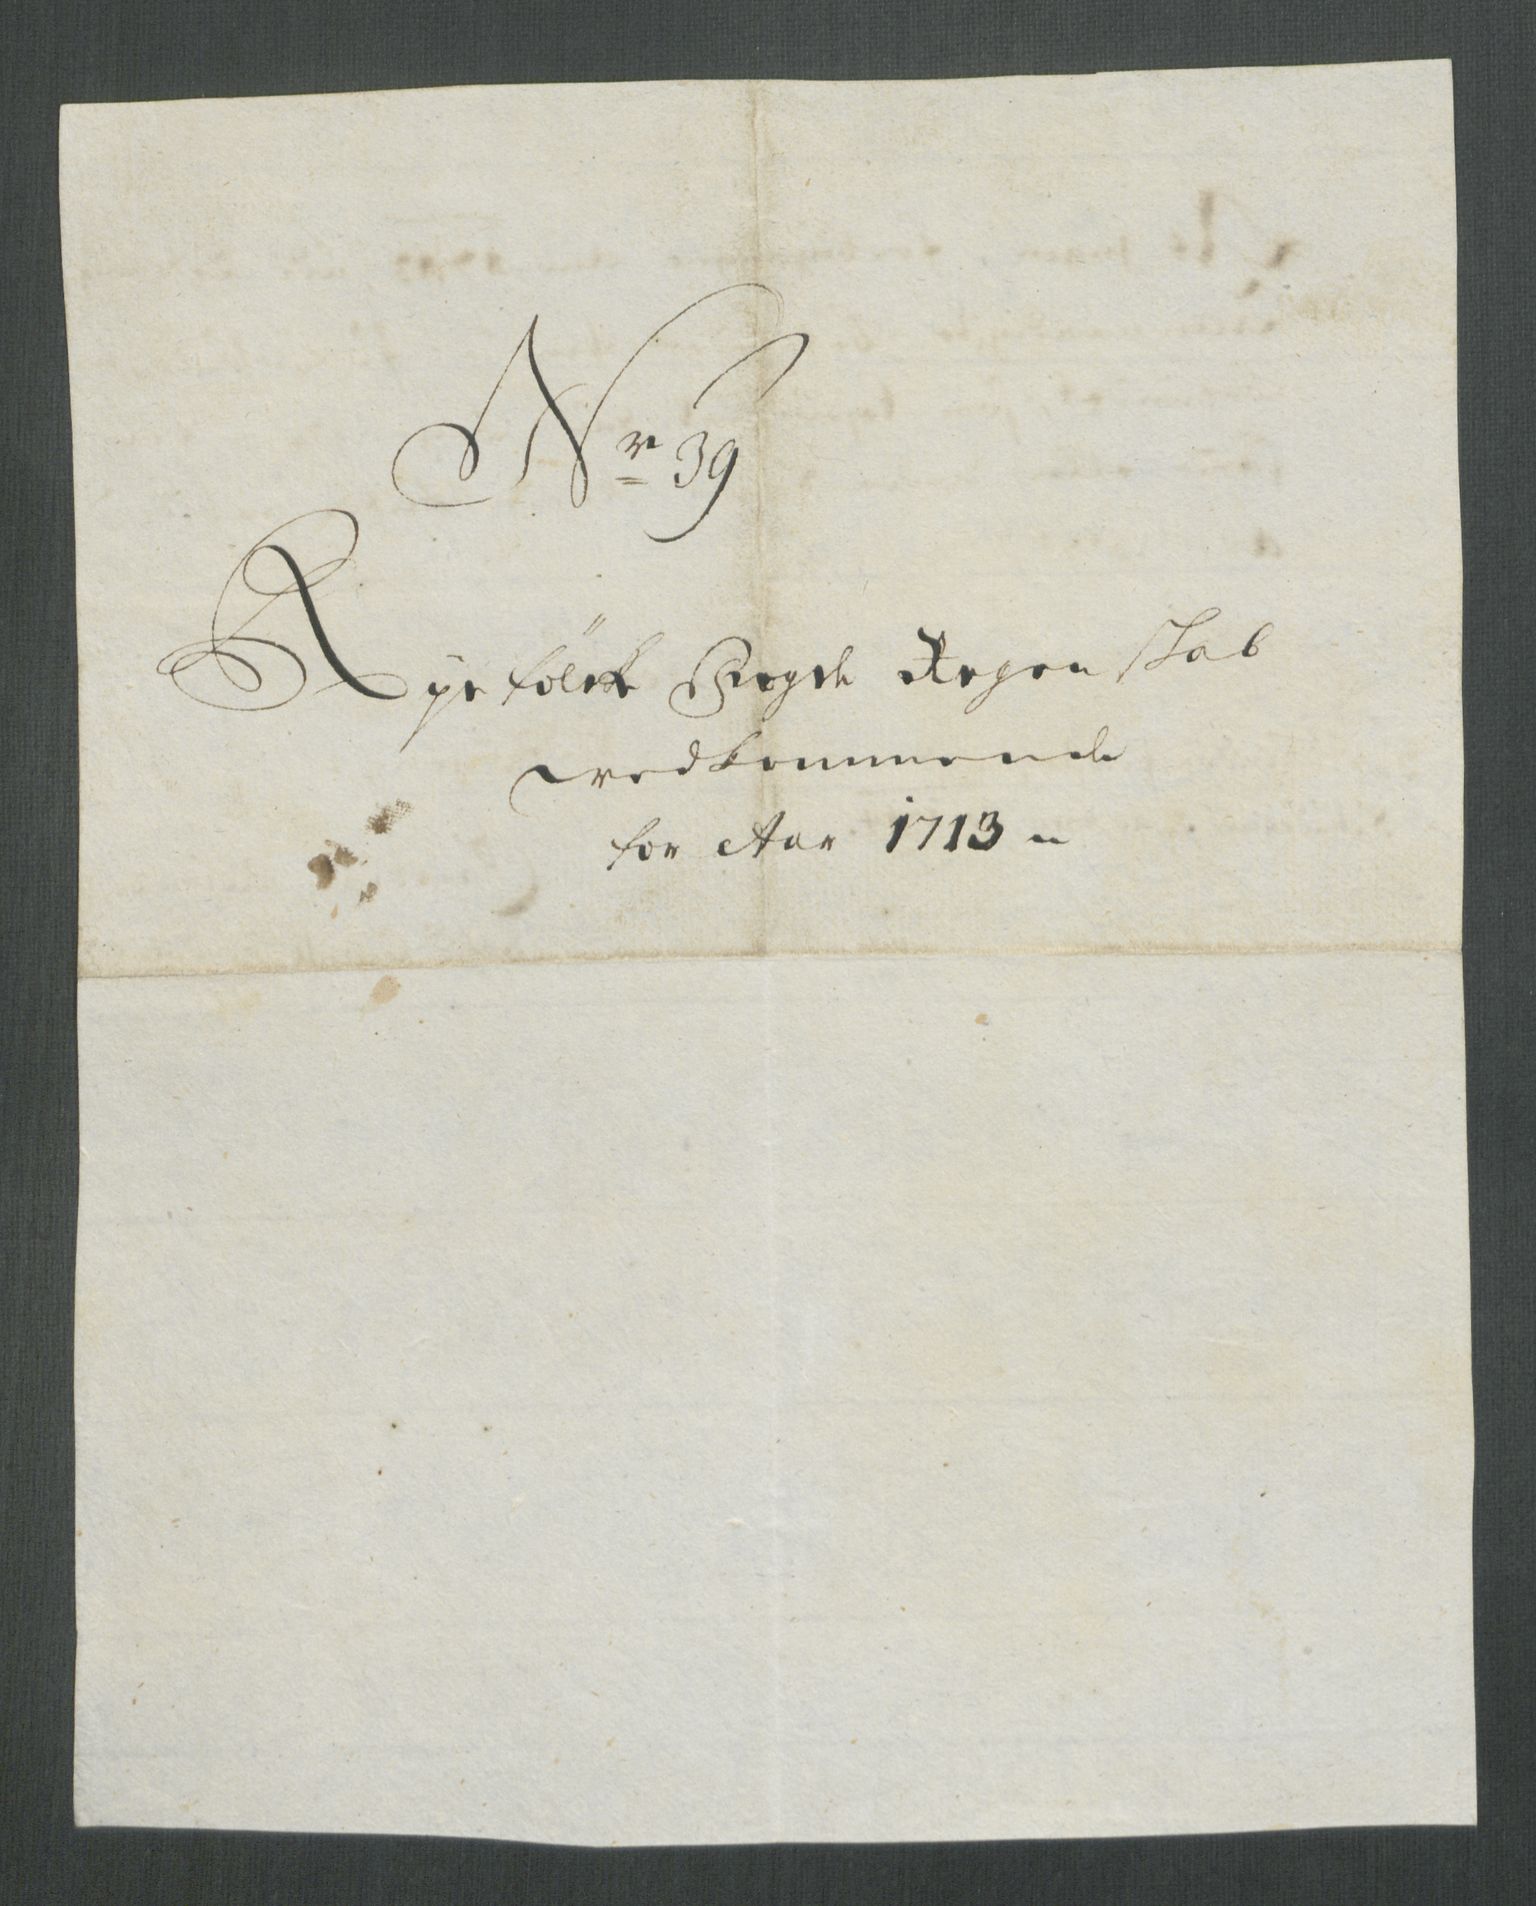 Nr 39
Ryefölcke Biugde Regenskab
vedkommende
for Aar 1713